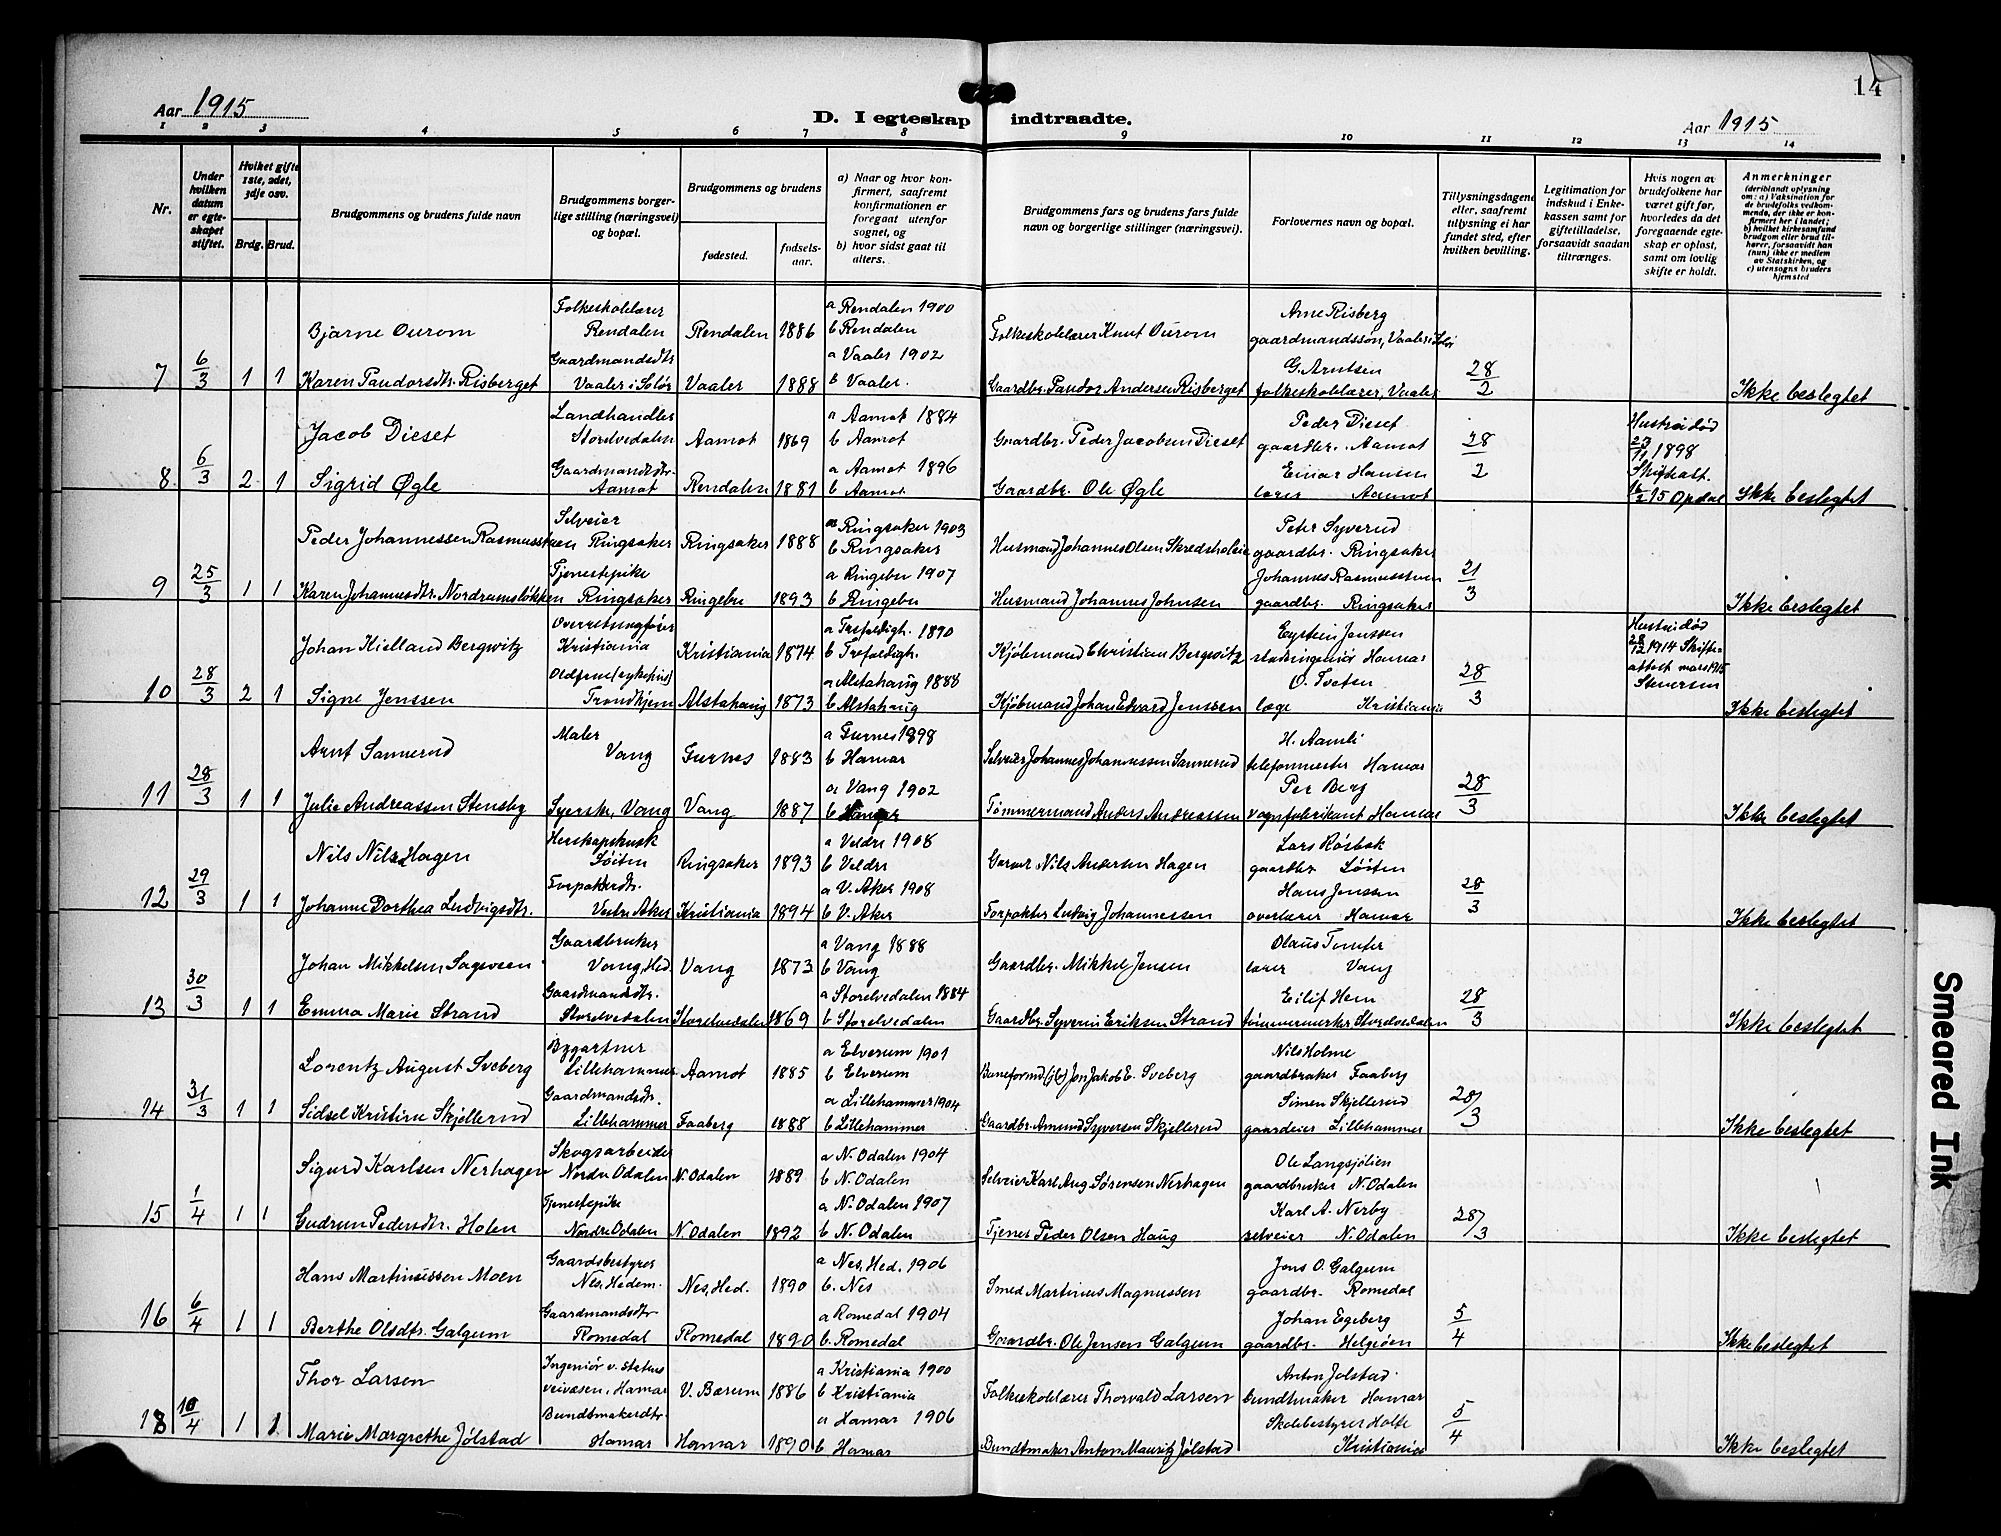 14
Aar 1915
D. I egteskap indtraadte.
Aar 1915
1 2 3 4 5 6 7 8 9 10 11 12 13 14
Nr.
Under hvilken datum er egteskapet stiftet.
Hvilket gifte 1ste, 2det, 3dje osv.
Brdg. Brud.
Brudgommens og brudens fulde navn
Brudgommens borgerlige stilling (næringsvei) og bopæl.
Brudgommens og brudens
fødested.
fødselsaar.
a) Naar og hvor konfirmert, saafremt konfirmationen er foregaat utenfor sognet, og
b) hvor sidst gaat til alters.
Brudgommens fars og brudens fars fulde navn og borgerlige stillinger (næringsvei).
Forlovernes navn og bopæl.
Tillysningsdagene eller, saafremt tillysning ei har fundet sted, efter hvilken bevilling.
Legitimation for indskud i Enkekassen samt for giftetilladelse, forsaavidt saadan tiltrænges.
Hvis nogen av brudefolkene har været gift før, hvorledes da det foregaaende egteskap er opløst, samt om lovlig skifte er holdt.
Anmerkninger
(deriblandt oplysning om: a) Vaksination for de brudefolks vedkommende, der ikke er konfirmert her i landet; b) hvilket kirkesamfund brudgom eller brud tilhører, forsaavidt han (hun) ikke er medlem av Statskirken, og c) utensogns bruders hjemsted
Bjarne Ourom Folkeskolelærer Rendalen Rendalen 1886 a Rendalen 1900 b Rendalen Folkeskolelærer Knut Ourom Arne Risberg gaardmandssøn, Vaaler i Solør
7 6/3 1 1 Karen Pandorsdtr. Risberget Gaardmandsdtr Vaaler i Solør Vaaler 1888 a Vaaler 1902 b Vaaler. Gaardbr. Pandor Andersen Risberget G. Arntsen folkeskolelærer, Vaaler 28/2 Ikke beslegtet
Jacob Dieset Landhandler Storelvedalen Aamot 1869 a Aamot 1884 b Aamot Gaardbr. Peder Jacobsen Dieset Peder Dieset gaardbr. Aamot Hustru død 23/11 1898
8 6/3 2 1 Sigrid Øgle Gaardmandsdtr. Aamot Rendalen 1881 a Aamot 1896 b Aamot Gaardbr. Ole Øgle Einar Hansen lærer Aamot 28/2 15 Opdal Ikke beslegtet
Peder Johannessen Rasmusstuen Selveier Ringsaker Ringsaker 1888 a Ringsaker 1903 b Ringsaker Husmand Johannes Olsen Skredsholen Peter Syverud gaardbr. Ringsaker
9 25/3 1 1 Karen Johannesdtr. Nordrumsløkken Tjenestepike Ringsaker Ringebu 1893 a Ringebu 1907 b Ringebu Husmand Johannes Johnsen Johannes Rasmusstuen gaardbr. Ringsaker 21/3 Ikke beslegtet
Johan Kielland Bergwitz Overretssagfører Kristiania Kristiania 1874 a Trefoldigh. 1890 b Trefoldigh. Kjøbmand Christian Bergwitz Eystein Jenssen stadsingeniør Hamar Hustru død 28/12 1914 Skifteattest mars 1915 Stenersen
10 28/3 2 1 Signe Jenssen Oldfrue (sykehus) Trondhjem Alstahaug 1873 a Alstahaug 1888 b Alstahaug Kjøbmand Johan Edvard Jenssen O. Tveten læge Kristiania 28/3 Ikke beslegtet
Arnt Sannerud Maler Vang Furnes 1883 a Furnes 1898 b Hamar Selveier Johannes Johannessen Sannerud H. Aamli telefonmester Hamar
11 28/3 1 1 Julie Andreassen Stensby Syerske, Vang Vang 1887 a Vang 1902 b Hamar Tømmermand Anders Andreassen Per Berg vognfabrikant Hamar 28/3 Ikke beslegtet
Nils Nilsen Hagen Herskapskusk Løiten Ringsaker 1893 a Veldre 1908 b Veldre Garver Nils Andersen Hagen Lars Røsbak gaardbr Løiten
12 29/3 1 1 Johanne Dorthea Ludvigsdtr. Forpakterdtr. Vestre Aker Kristiania 1894 a V. Aker 1908 b V. Aker Forpakter Ludvig Johannessen Hans Jenssen overlærer Hamar 28/3 Ikke beslegtet
Johan Mikkelsen Sagveen Gaardbruker Vang, Hed. Vang 1873 a Vang 1888 b Vang Gaardbr. Mikkel Jensen Olaus Tomter lærer Vang
13 30/3 1 1 Emma Marie Strand Gaardmandsdtr. Storelvedalen Storelvedalen 1869 a Storelvedalen 1884 b Storelvedalen Gaardbr. Syverin Eriksen Strand Eilif Hem tømmermerker Storelvedalen 28/3 Ikke beslegtet
Lorentz August Sveberg Bygartner Lillehammer Aamot 1885 a Elverum 1901 b Elverum Baneformd (jb) Jon Jakob E. Sveberg Nils Holme gaardbruker Faaberg
14 31/3 1 1 Sidsel Kristine Skjellerud Gaardmandsdtr. Lillehammer Faaberg 1888 a Lillehammer 1904 b Lillehammer Gaardbr. Amund Syversen Skjellerud Simen Skjellerud gaardeier Lillehammer 28/3 Ikke beslegtet
Sigurd Karlsen Nerhagen Skogsarbeider Nordre Odalen N. Odalen 1889 a N. Odalen 1904 b N. Odalen Selveier Karl Aug. Sørensen Nerhagen Ole Langsjølien gaardbruker N. Odalen
15 1/4 1 1 Gudrun Pedersdtr. Holen Tjenestepike Nordre Odalen N. Odalen 1892 a N. Odalen 1907 b N. Odalen Tjener Peder Olsen Haug Karl A. Nerby selveier N. Odalen 28/3 Ikke beslegtet
Hans Martiniussen Moen Gaardsbestyrer Nes, Hedem. Nes, Hed. 1890 a Nes, Hed. 1906 b. Nes Smed Martinius Magnussen Jens O. Galgum gaardbr. Romedal
16 6/4 1 1 Berthe Olsdtr. Galgum Gaardmandsdtr Romedal Romedal 1890 a Romedal 1904 b. Romedal Gaardbr. Ole Jensen Galgum Johan Egeberg gaardbr. Helgøen 5/4 Ikke beslegtet
Thor Larsen Ingeniør v. statens veivæsen, Hamar V. Bærum 1886 a Kristiania 1900 b Kristiania Folkeskolelærer Thorvald Larsen Anton Jølstad bundtmaker Hamar
18 10/4 1 1 Marie Margrethe Jølstad Bundtmakerdtr. Hamar Hamar 1890 a Hamar 1906 b Hamar Bundtmaker Anton Mauritz Jølstad Skolebestyrer Holte Kristiania 5/4 Ikke beslegtet
Smeared Ink